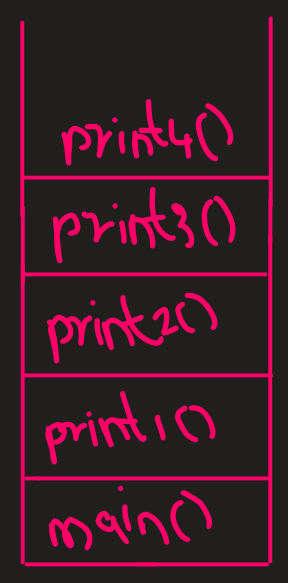 print4()
print3()
print2()
print1()
main()